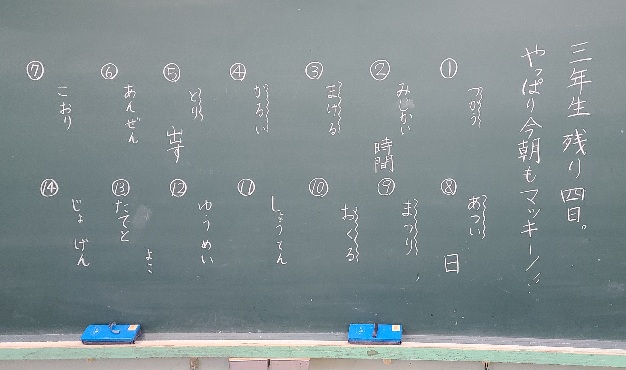 三年生 残り四日。
やっぱり今朝もマッキーノ!!
① つかう
② みじかい 時間
③ まける
④ かるい
⑤ とり 出す
⑥ あんぜん
⑦ こおり
⑧ あつい 日
⑨ まつり
⑩ おくる
⑪ しょうてん
⑫ ゆうめい
⑬ たてと よこ
⑭ じょげん